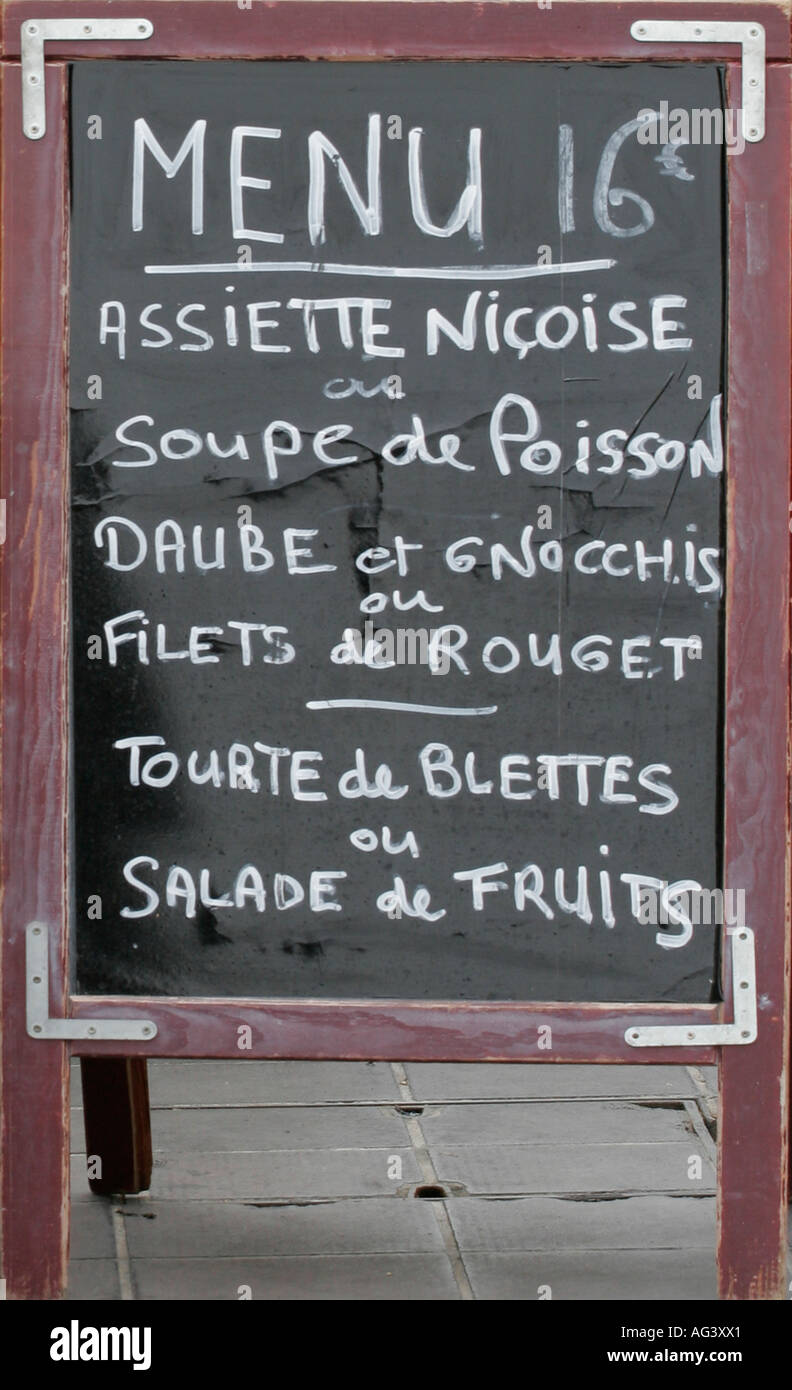 MENU 16€
ASSIETTE NiÇOiSE
ou
Soupe de Poisson
DAUBE et GNOCCHiS
ou
FiLETS de ROUGET
TOURTE de BLETTES
ou
SALADE de FRUiTS
alamy
a
a
alamy
Image ID: AG3XX1
www.alamy.com